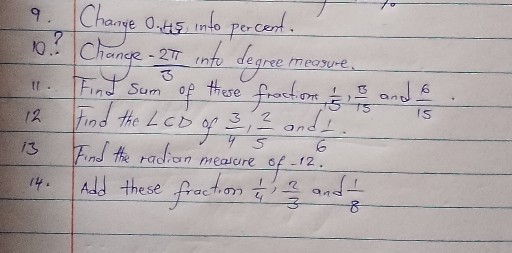 9. Change 0.45, into percent.
10.? Change -2π/3 into degree measure.
11. Find sum of these fraction 1/15, 3/15 and 6/15.
12 Find the LCD of 3/4, 2/5 and 1/6.
13 Find the radian measure of -12.
14. Add these fraction 1/4, 2/3 and 1/8